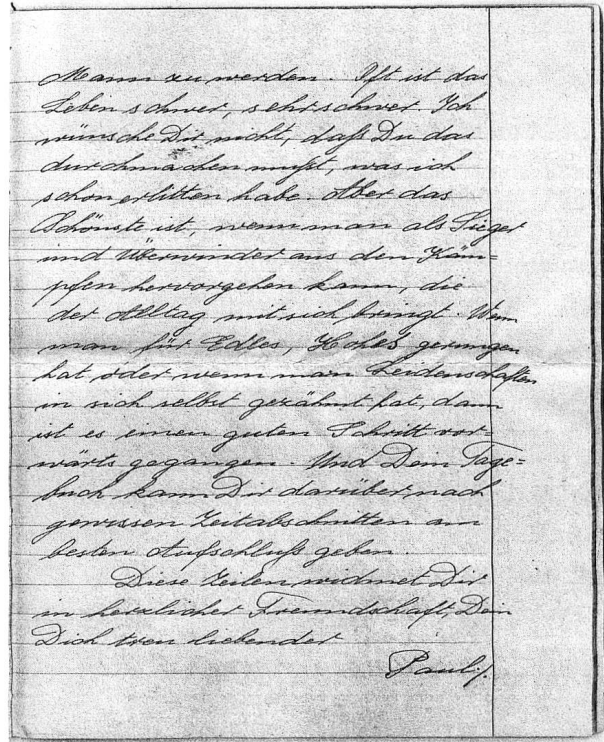 Mann zu werden. Oft ist das
Leben schwer, sehr schwer. Ich
wünsche Dir nicht, daß Du das
durchmachen mußt, was ich
schon erlitten habe. Aber das
Schönste ist, wenn man als Sieger
und Überwinder aus den Käm=
pfen hervorgehen kann, die
der Alltag mit sich bringt. Wenn
man für Edles, Hohes gerungen
hat oder wenn man Leidenschaften
in sich selbst gezähmt hat, dann
ist es einen guten Schritt vor
wärts gegangen. Und Dein Tage=
buch kann Dir darüber, nach
gewissen Zeitabschnitten am
besten Aufschluß geben.
Diese Zeilen widmet Dir
in herzlicher Freundschaft, Dein
Dich treu liebender
Paul:/.